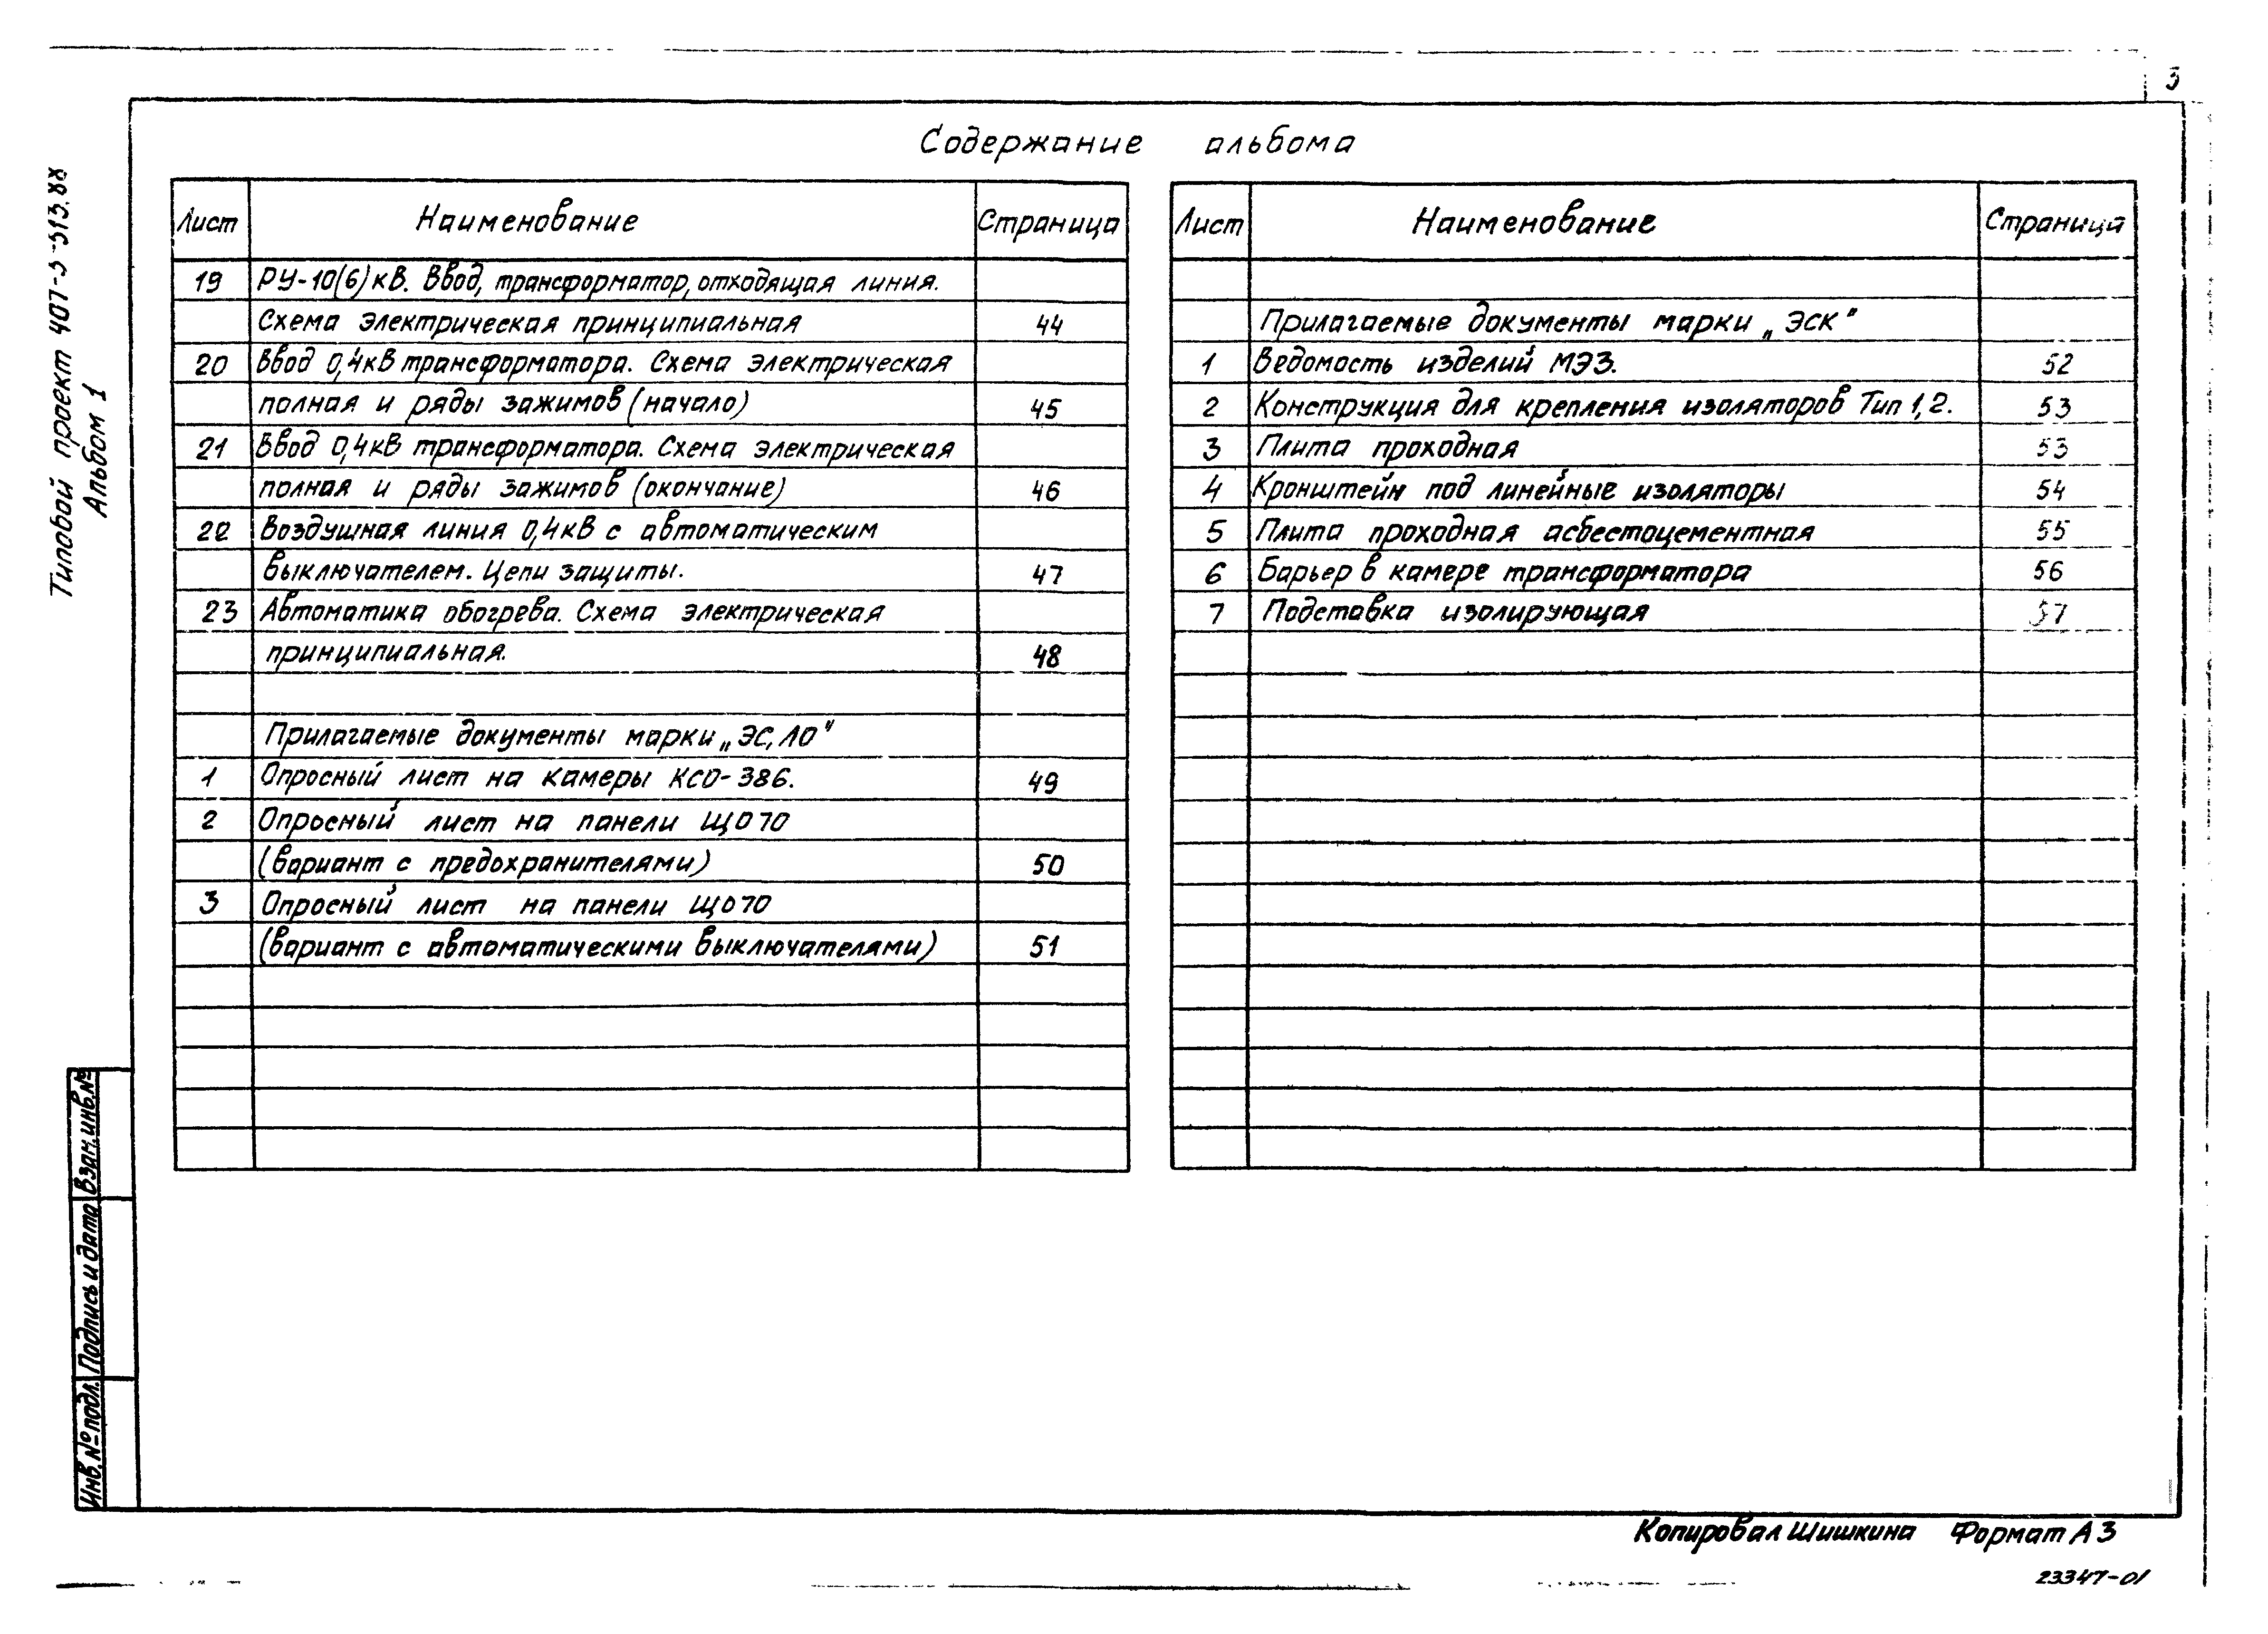 3
Содержание альбома
Типовой проект 407-3-513.88
Альбом 1
Лист Наименование Страница
19 РУ-10(6)кВ. Ввод, трансформатор, отходящая линия.
Схема электрическая принципиальная 44
20 Ввод 0,4кВ трансформатора. Схема электрическая
полная и ряды зажимов (начало) 45
21 Ввод 0,4кВ трансформатора. Схема электрическая
полная и ряды зажимов (окончание) 46
22 Воздушная линия 0,4кВ с автоматическим
выключателем. Цепи защиты. 47
23 Автоматика обогрева. Схема электрическая
принципиальная. 48
Прилагаемые документы марки „ЭС, ЛО"
1 Опросный лист на камеры КСО-386. 49
2 Опросный лист на панели ЩО70
(вариант с предохранителями) 50
3 Опросный лист на панели ЩО70
(вариант с автоматическими выключателями) 51
Лист Наименование Страница
Прилагаемые документы марки „ЭСК"
1 Ведомость изделий МЭЗ. 52
2 Конструкция для крепления изоляторов Тип 1,2. 53
3 Плита проходная 53
4 Кронштейн под линейные изоляторы 54
5 Плита проходная асбестоцементная 55
6 Барьер в камере трансформатора 56
7 Подставка изолирующая 57
Взам. инв. №
Подпись и дата
Инв. № подл.
Копировал Шишкина Формат А3
23347-01